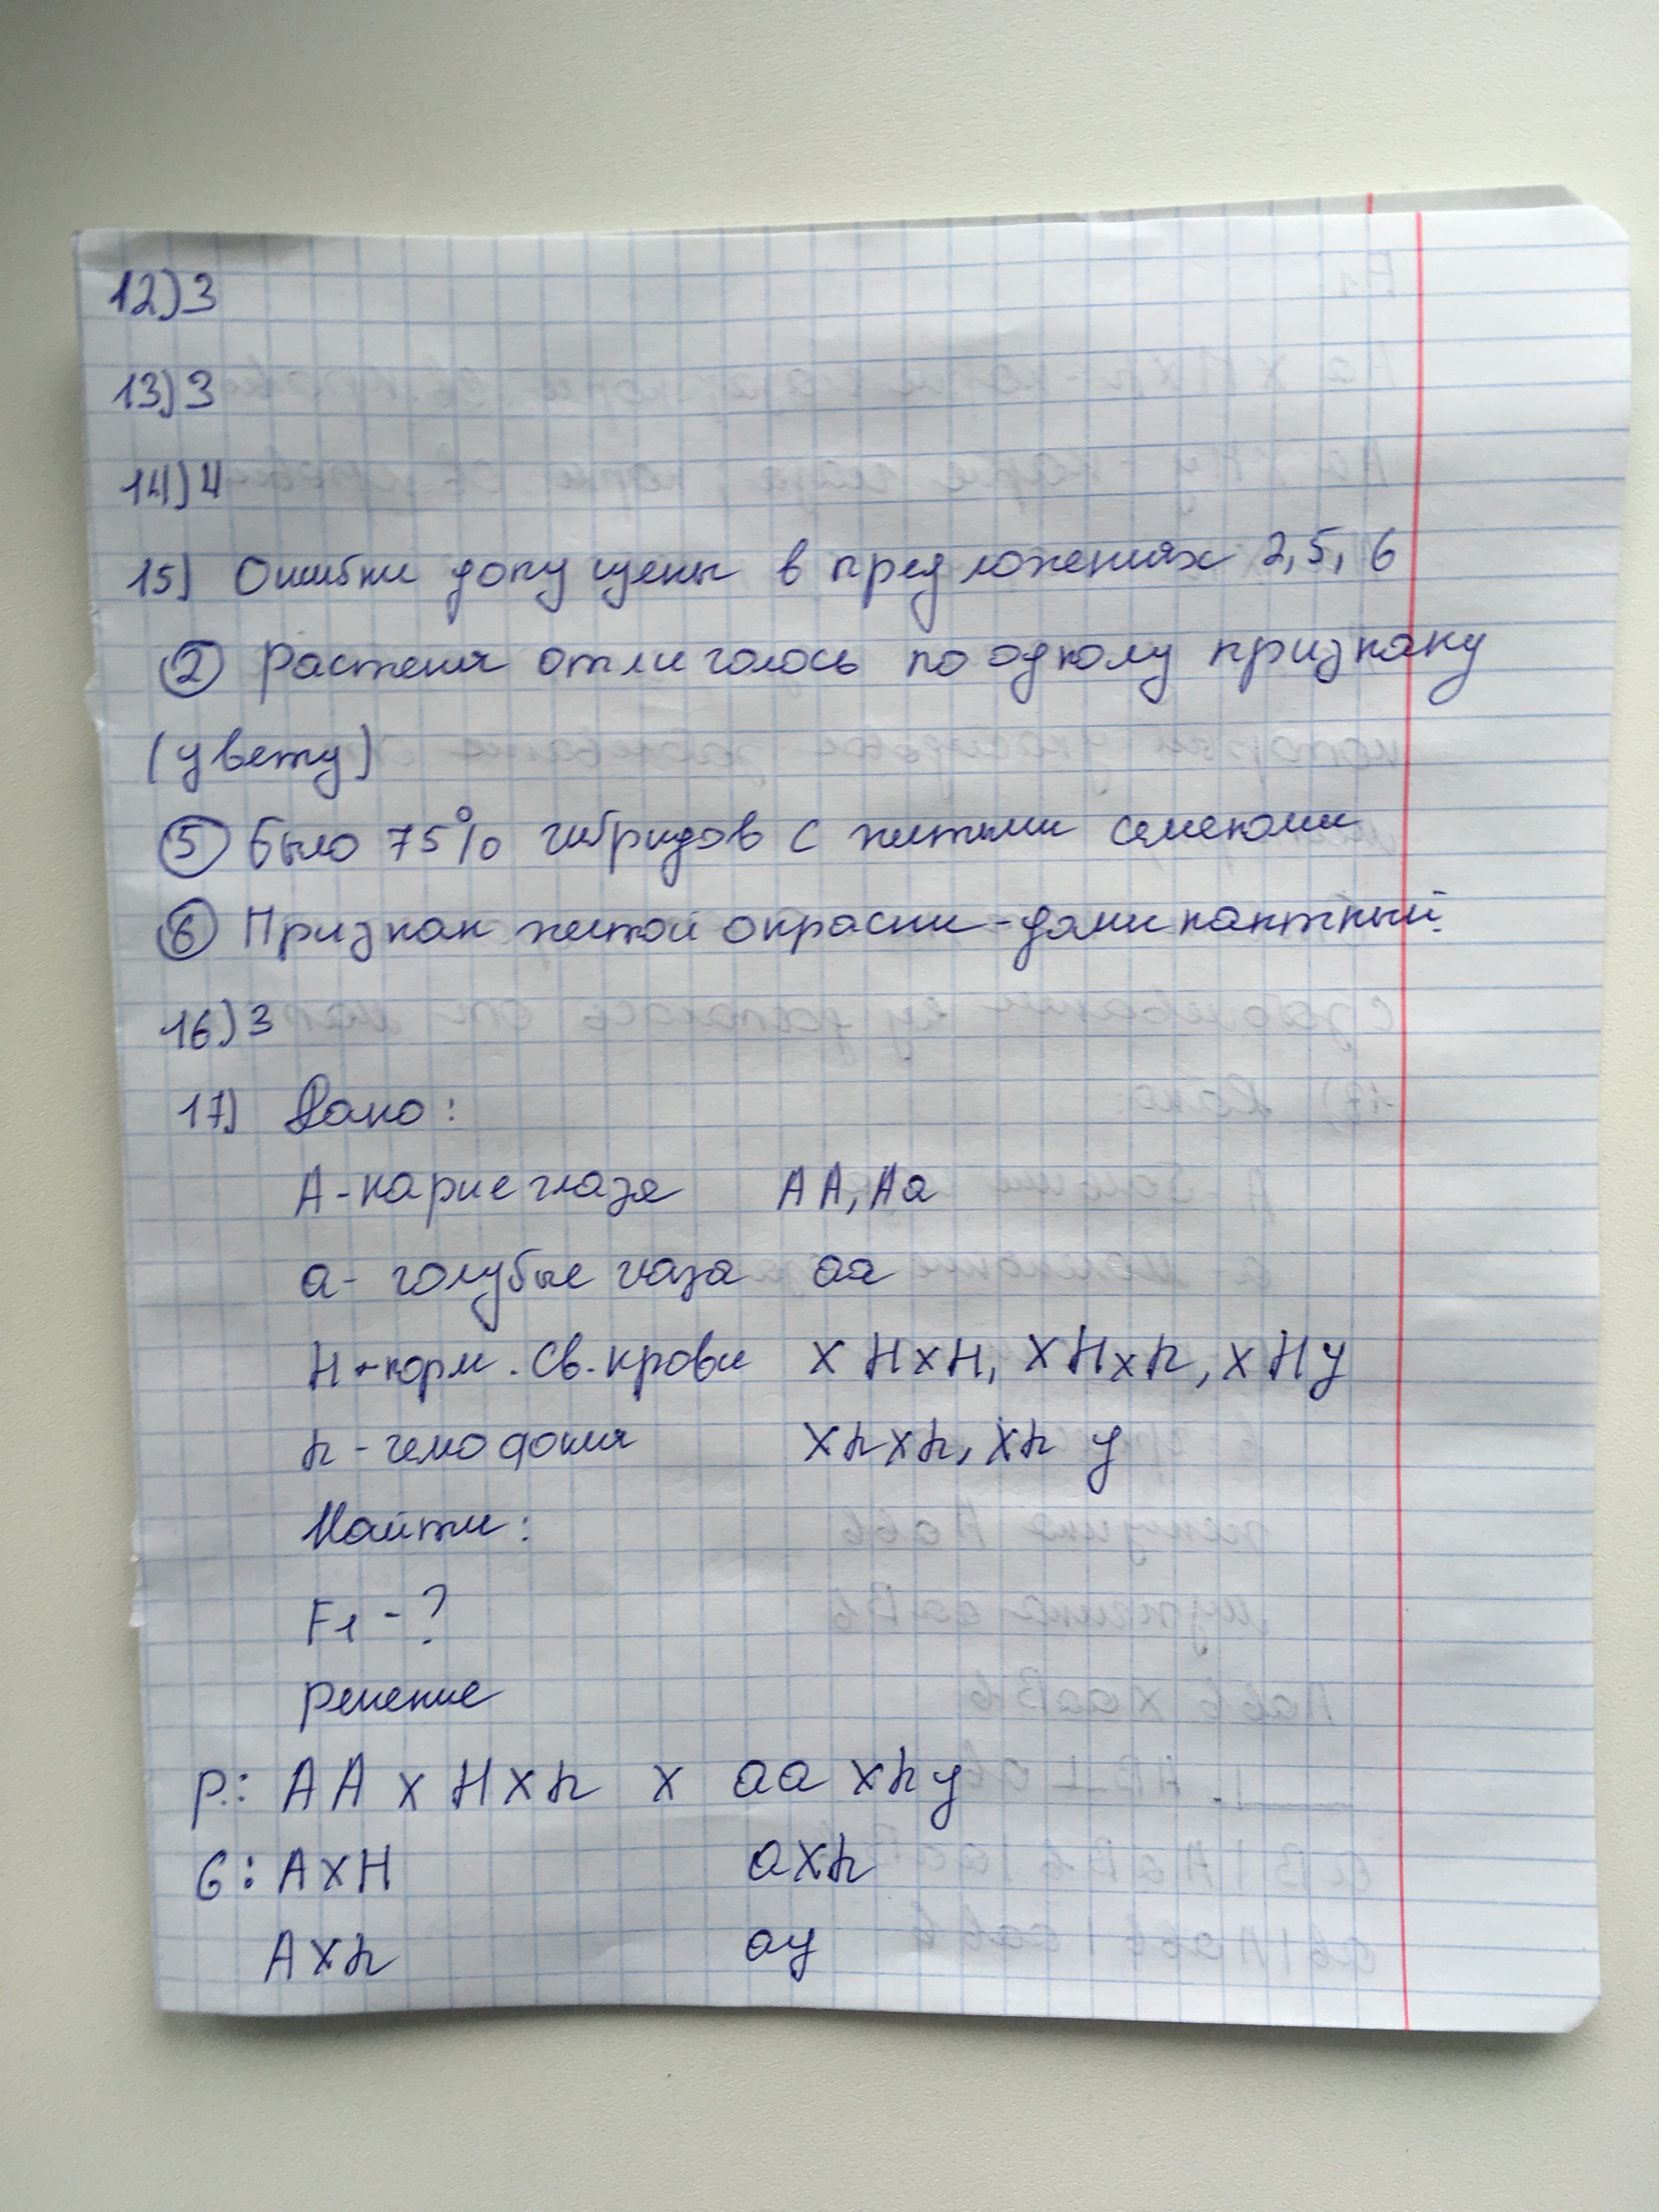 12) 3
13) 3
14) 4
15) Ошибки допущены в предложениях 2, 5, 6
② Растеня отличалось по одному признаку
(цвету)
⑤ Было 75% гибридов с желтыми семенами
⑥ Признак желтой окраски - доминантный.
16) 3
17) Дано:
А - карие глаза АА, Аа
а - голубые глаза аа
H - норм. св. крови X H X H, X H X h, X H y
h - гемофилия X h X h, X h y
Найти:
F1 - ?
Решение
P: AA X H X h x aa X h y
G: A X H a X h
A X h a y